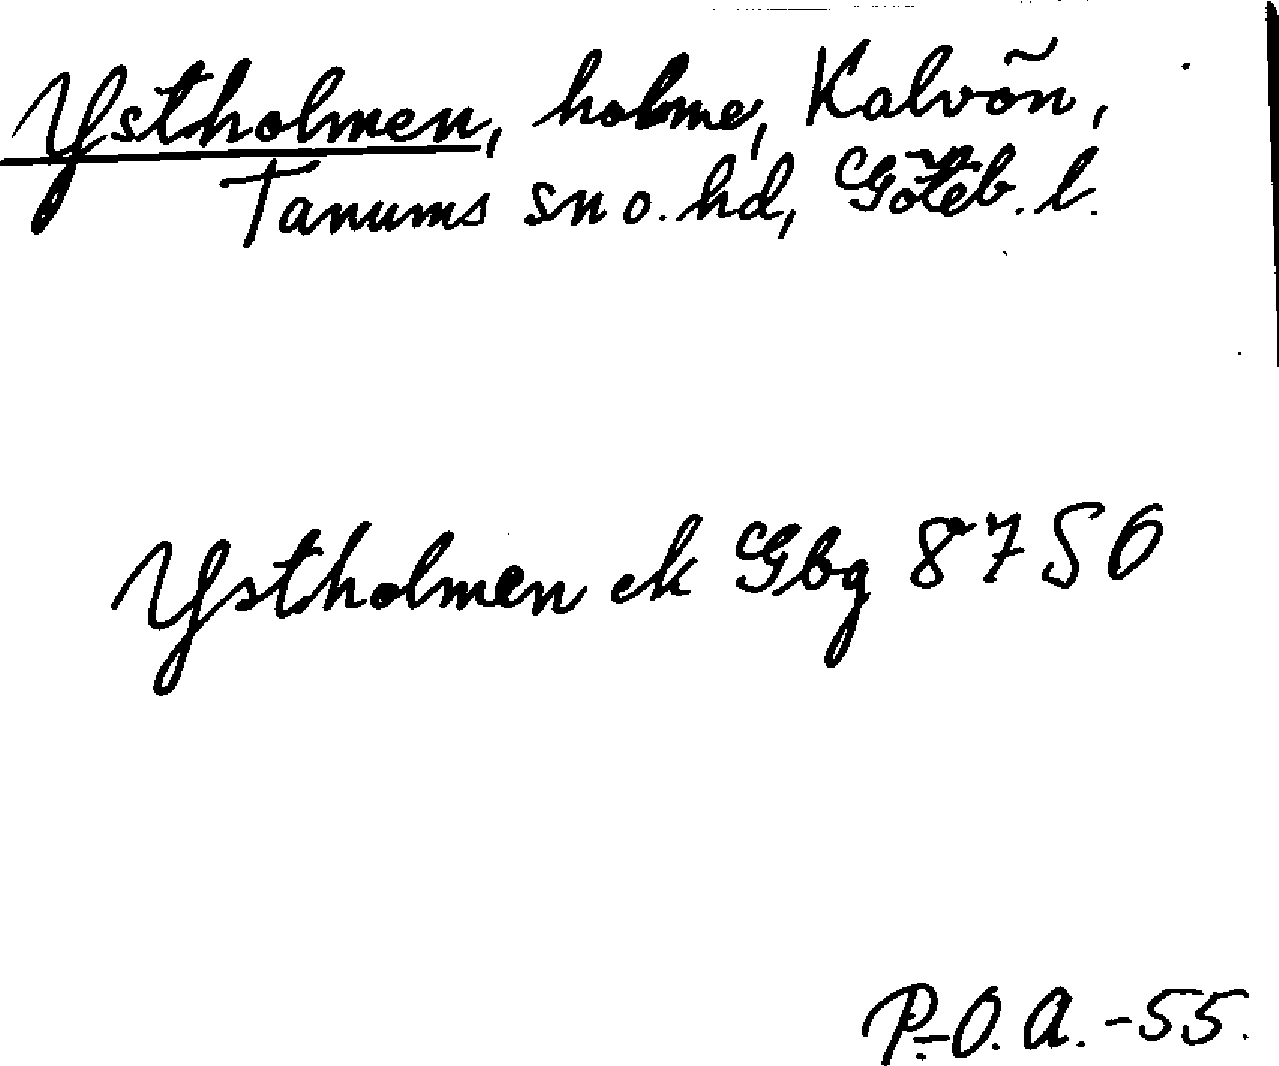 Ystholmen, holme, Kalvön,
Tanums sn o. hd, Göteb. l.
Ystholmen ek Gbg 8750
P.-O. A. -55.